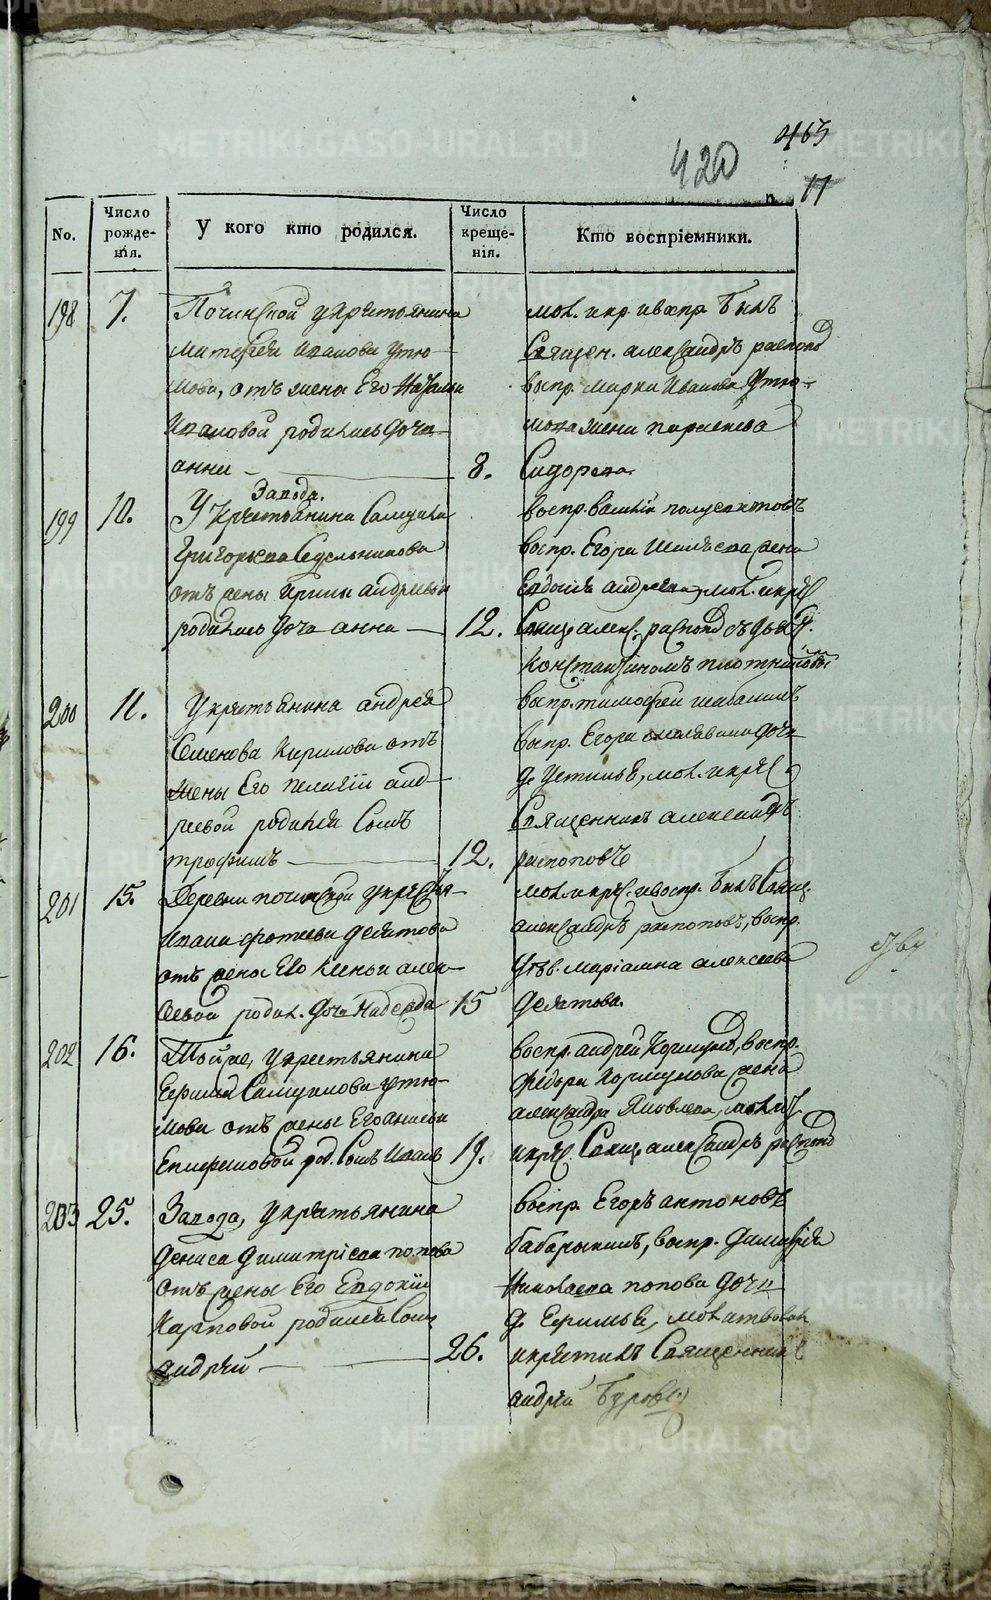 METRIKI.GASO-URAL.RU
465
420
11
No.
Число рожде-нія.
У кого кто родился.
Число креще-нія.
Кто воспріемники.
198 7. Починской укрестьянина
Матвея Иванова Утю-
мова, отъ жены Его Натальи
Ивановой родилась дочь
анна 8.
мол. икр. ивоспр. былъ
Священ. александръ распопо
воспр. марка Иванова Утю-
мова жена
Сидорова
199 10. Завода.
Укрестьянина Самуила
Григорьева Седельникова
отъ жены Ирины андреевой
родилась дочь анна 12.
воспр.
воспр. Егора жена
андреева, мол. икрес
Свящ. алекс. распопо съ
Константиномъ плотниковы
200 11. Укрестьянина андрея
Семенова Кирилова отъ
жены Его Пелагіи анд-
реевой родился Сынъ
трофимъ 12.
воспр. тимофей
воспр. Егора дочь
д. Устинья, мол. икрес
Священникъ александръ
распоповъ
201 15. Деревни починской укресть-
Ивана фотиева Девятова
отъ жены Его Ксеньи алек-
севой родил. дочь Надежда 15
мол. икрес. ивоспр. былъ Свящ.
александръ распоповъ, воспр.
маріамна алексеева
Девятова.
202 16. Тойже, укрестьянина
Ефима Самуилова утю-
мова отъ жены Его
Епифановой род. Сынъ Иванъ 19.
воспр. андрей Коршуно, воспр.
Федора Коршунова жена
александра Яковлева, мол.
икрес. Свящ. александръ распопо
203 25. Завода, укрестьянина
Дениса Димитріева попова
отъ жены Его Евдокіи
Карповой родился Сынъ
андрей 26.
воспр. Егоръ антоновъ
бабарыкинъ, воспр. Димитрія
Николаева попова дочь
д. Ефимья, молитвовал
икрестилъ Священникъ
андрей Буровъ.